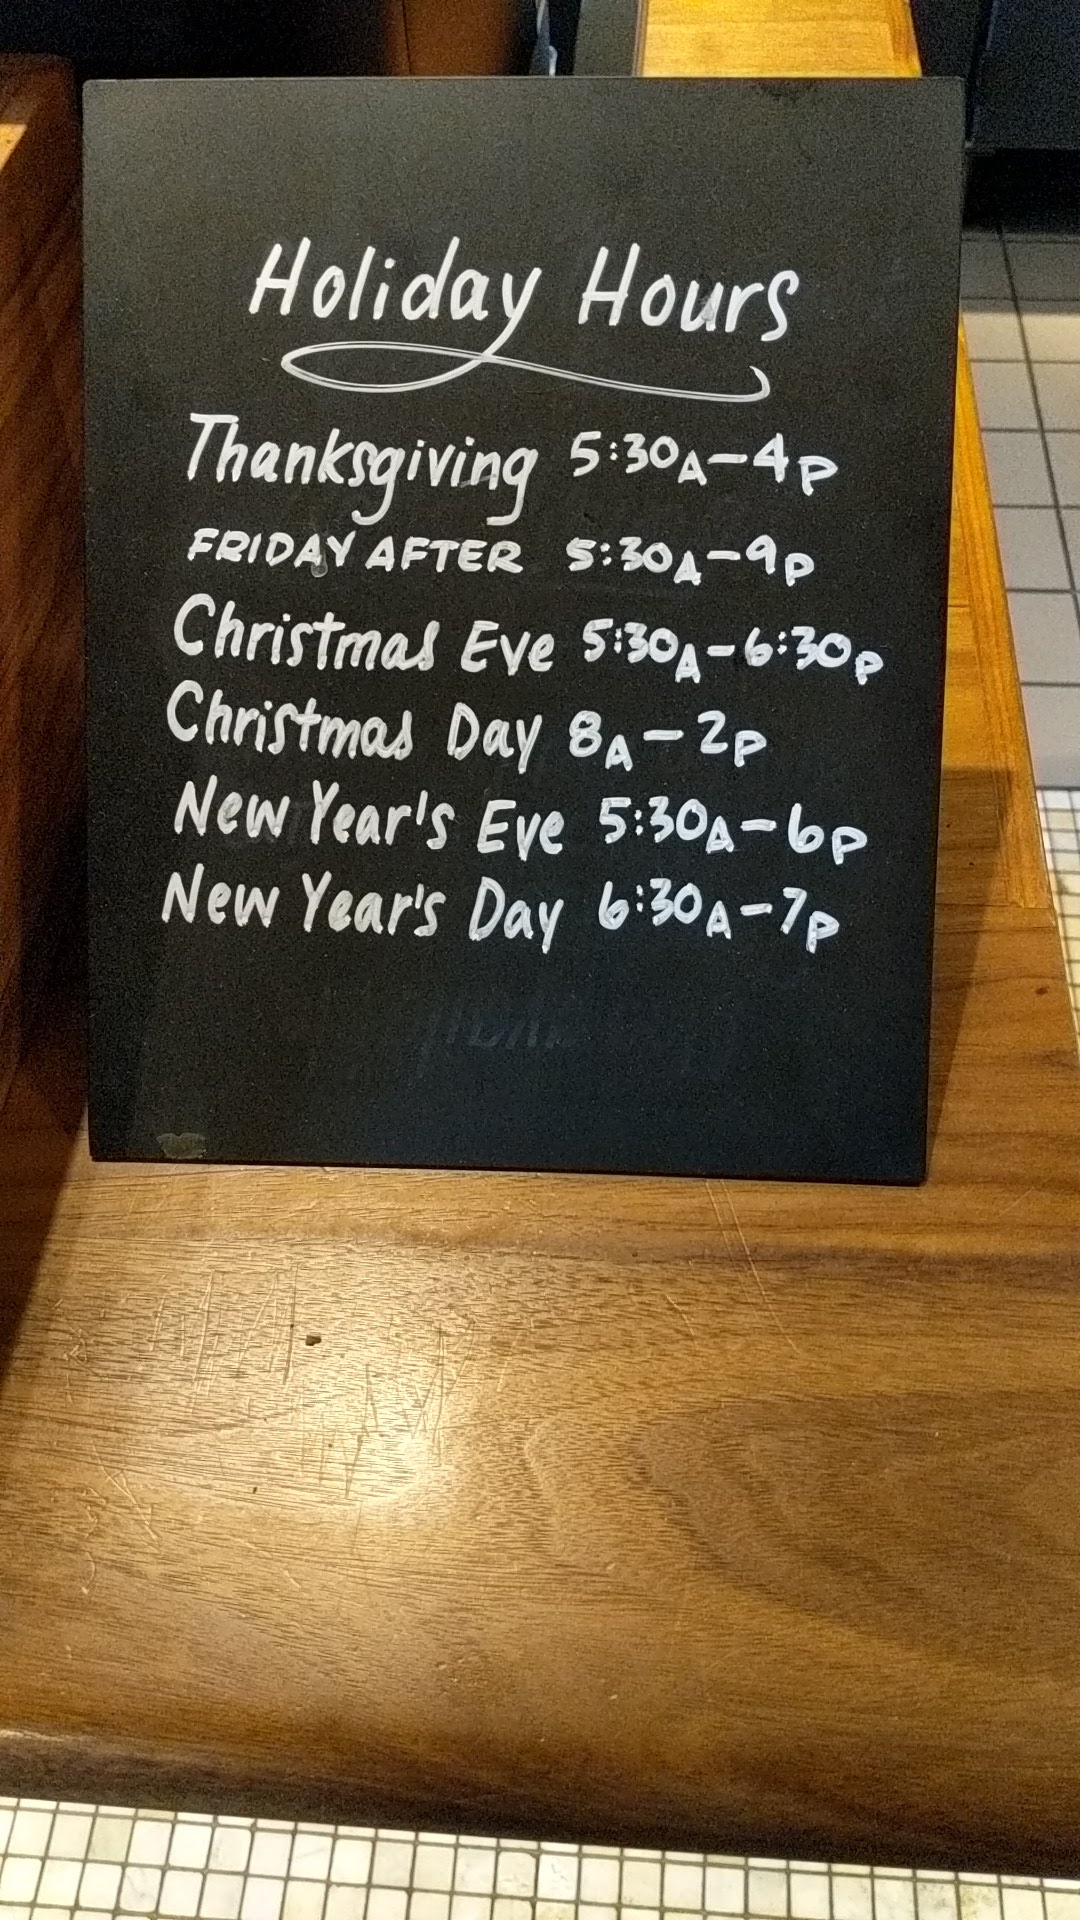 Holiday Hours
Thanksgiving 5:30A-4P
FRIDAY AFTER 5:30A-9P
Christmas Eve 5:30A-6:30P
Christmas Day 8A-2P
New Year's Eve 5:30A-6P
New Year's Day 6:30A-7P